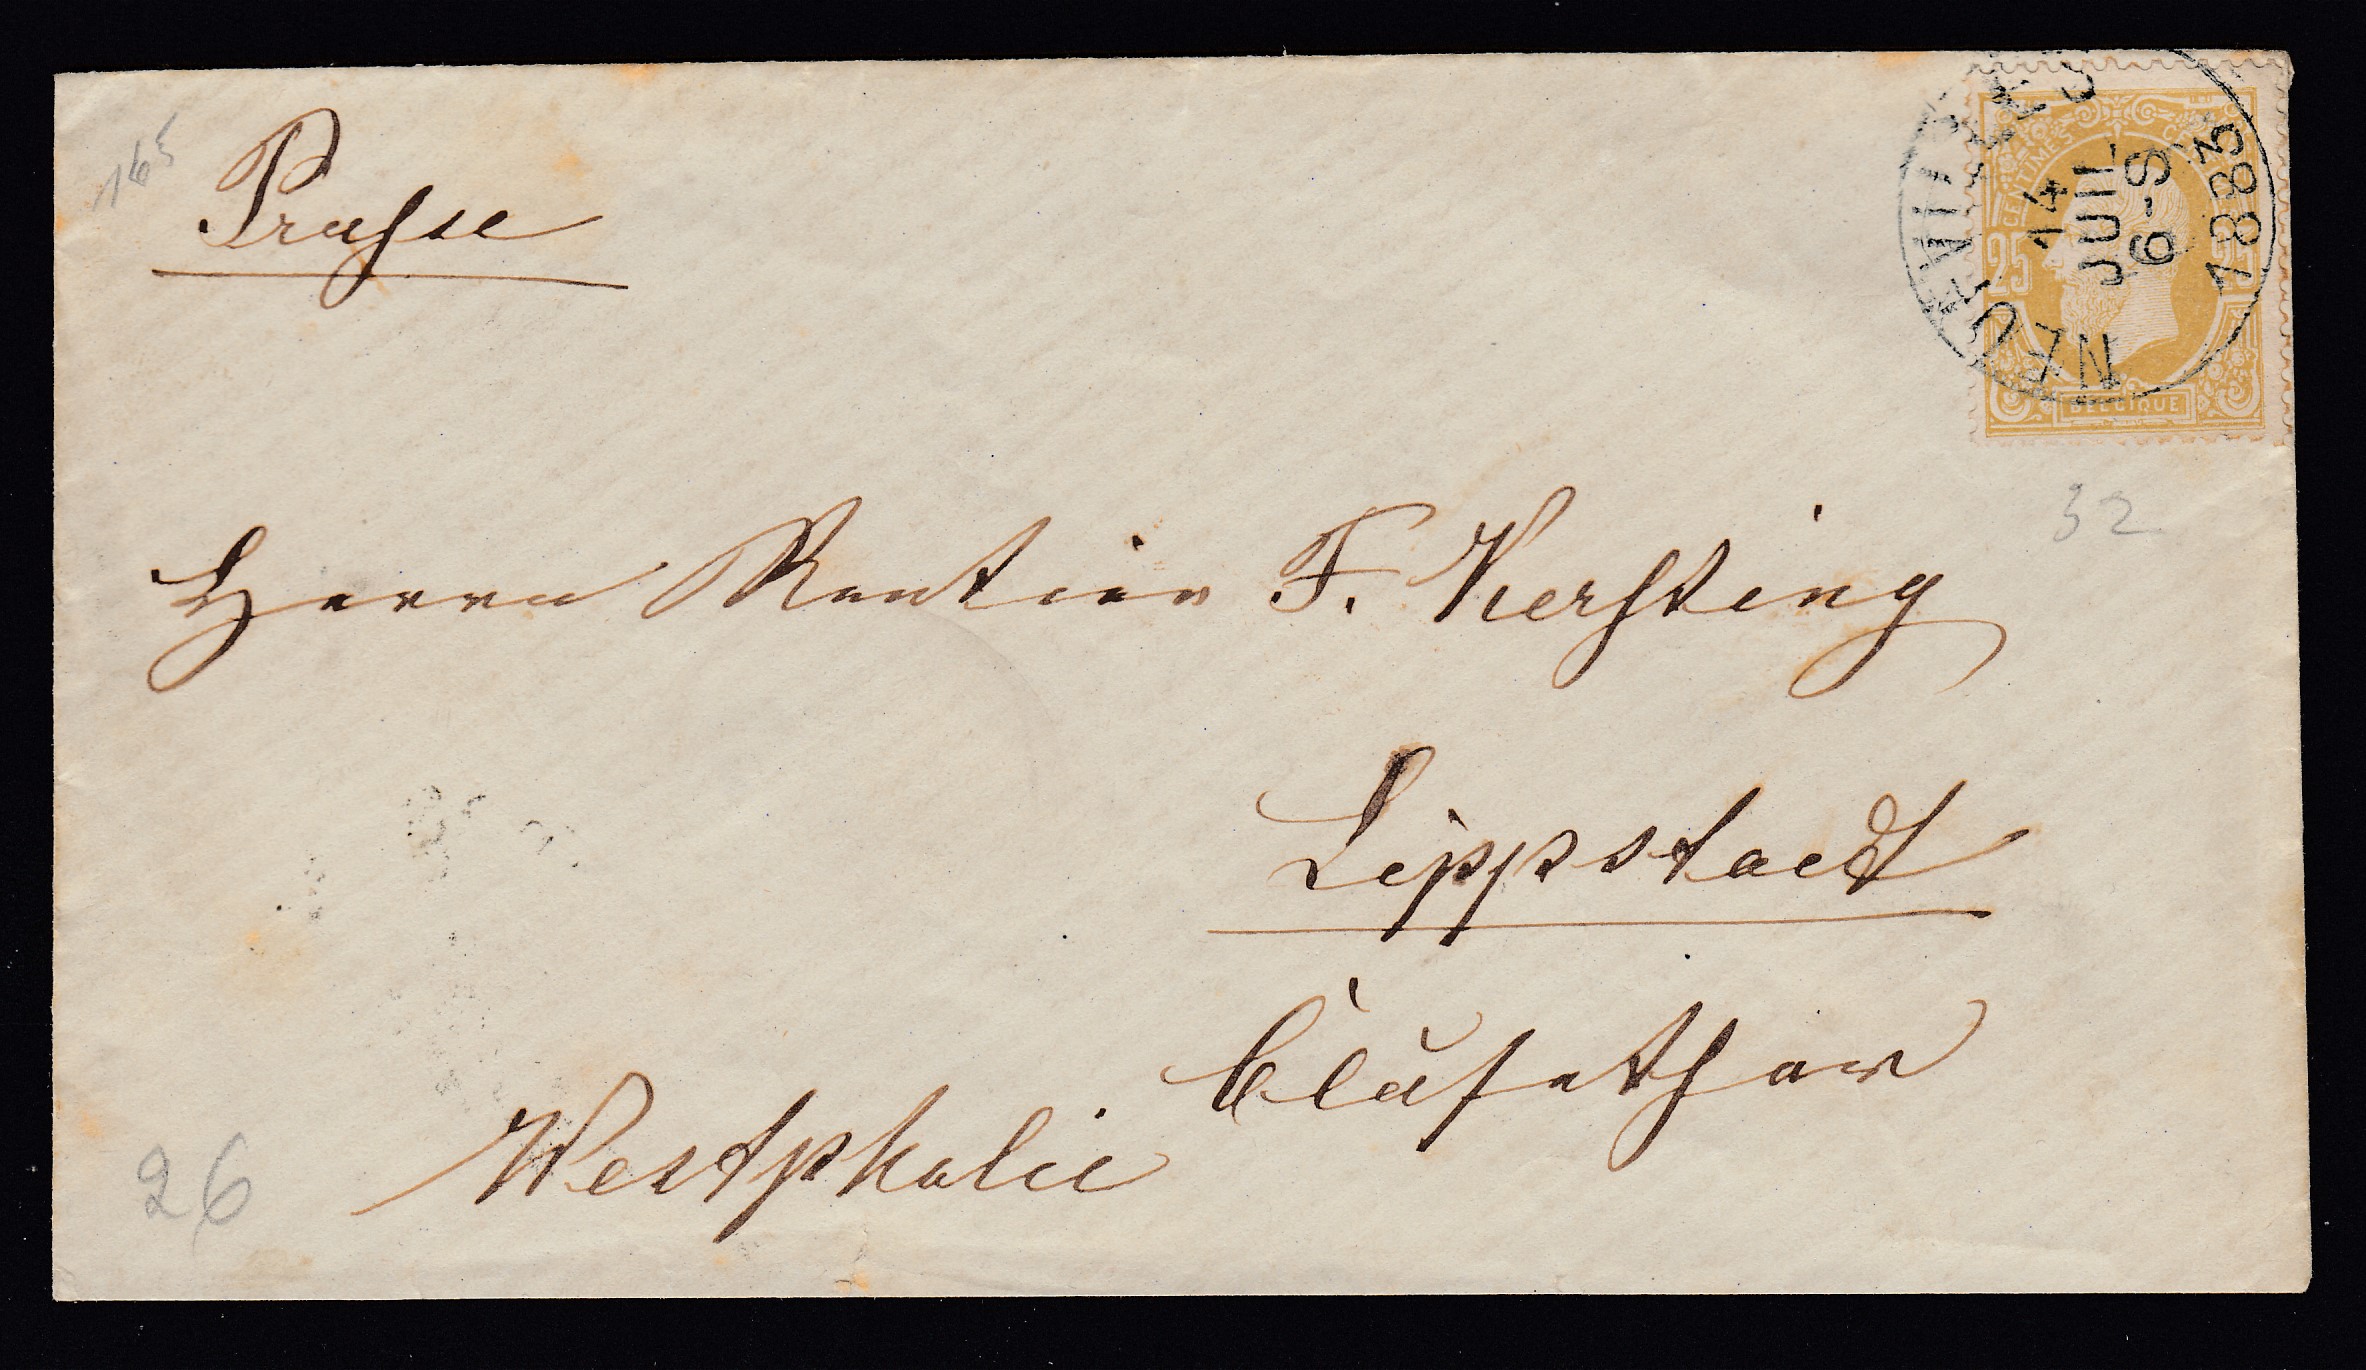 165
Prusse
CENTIMES
25 25
BELGIQUE
14
JUIL
6-S
1883
32
Herrn Rentier F. Kersting
Lippstadt
Westphalie
26